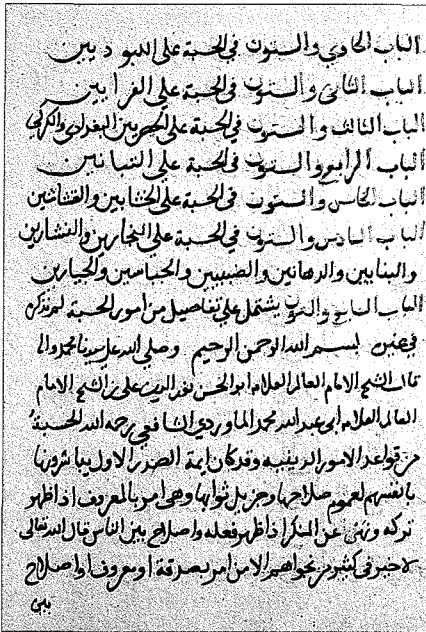 الباب الحادي والستون في الحسبة على اللبوديين
الباب الثاني والستون في الحسبة على الفرايين
الباب الثالث والستون في الحسبة على الحصريين البغدادي والكركي
الباب الرابع والستون في الحسبة على التبانين
الباب الخامس والستون في الحسبة على الخشابين والقشاشين
الباب السادس والستون في الحسبة علي النجارين والنشارين
والبنايين والدهانين والضببيين والجباسين والجيارين
الباب السابع والستون يشتمل علي تفاصيل من امور الحسبة لم تذكر
في غيره بسم الله الرحمن الرحيم وصلي الله علي سيدنا محمد واله
قال الشيخ الامام العالم العلامه ابو الحسن نور الدين علي بن الشيخ الامام
العالم العلامه ابي عبد الله محمد الماوردي الشافعي رحمه الله الحسبة
من قواعد الامور الدينيه وقد كان ايمة الصدر الاول يباشرونها
بانفسهم لعموم صلاحها وجزيل ثوابها وهي امر بالمعروف اذا ظهر
تركه ونهي عن المنكر اذا ظهر فعله واصلاح بين الناس قال الله تعالى
لا خير في كثير من نجواهم الا من امر بصدقة او معروف او اصلاح
بين